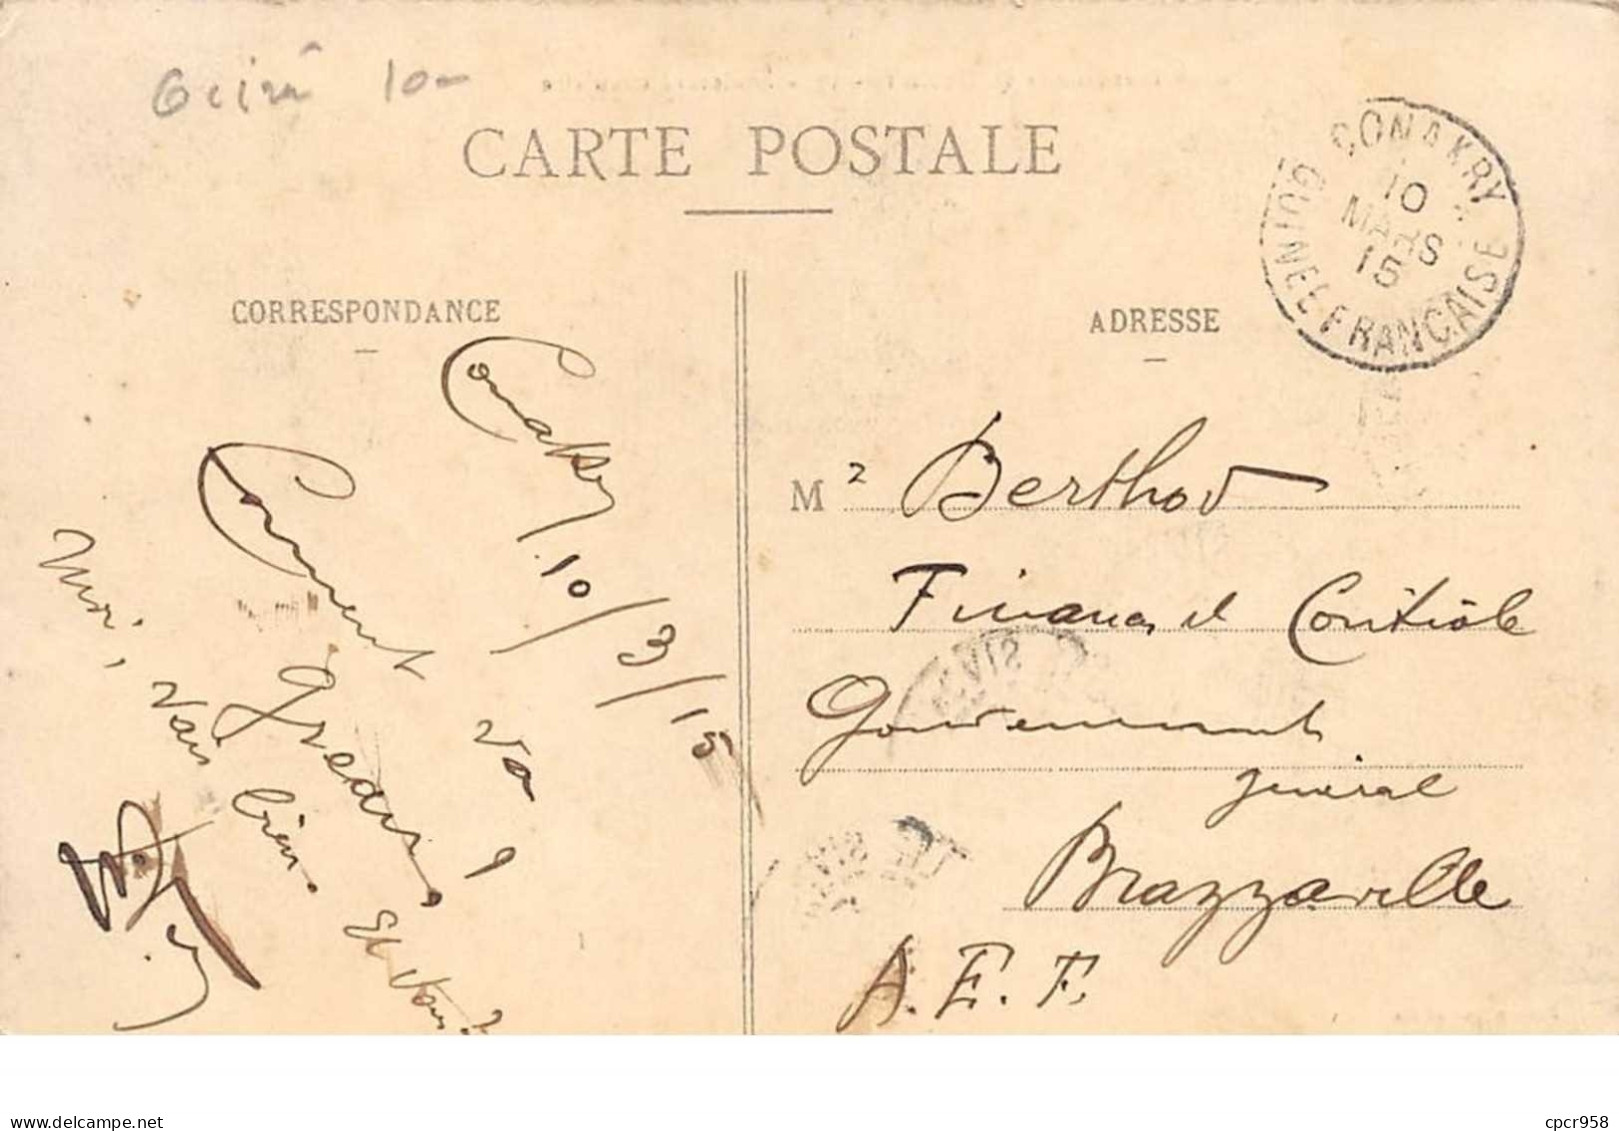 10-
CARTE POSTALE
CONAKRY
10
MARS
15
GUINEE FRANCAISE
CORRESPONDANCE
ADRESSE
Conakry 10/3/15
Comment va
?
Moi, vais bien. Et vous?
Mr Berthod
Finances et Contrôle
Gouvernement
général
Brazzaville
A.E.F.
delcampe.net
cpcr958